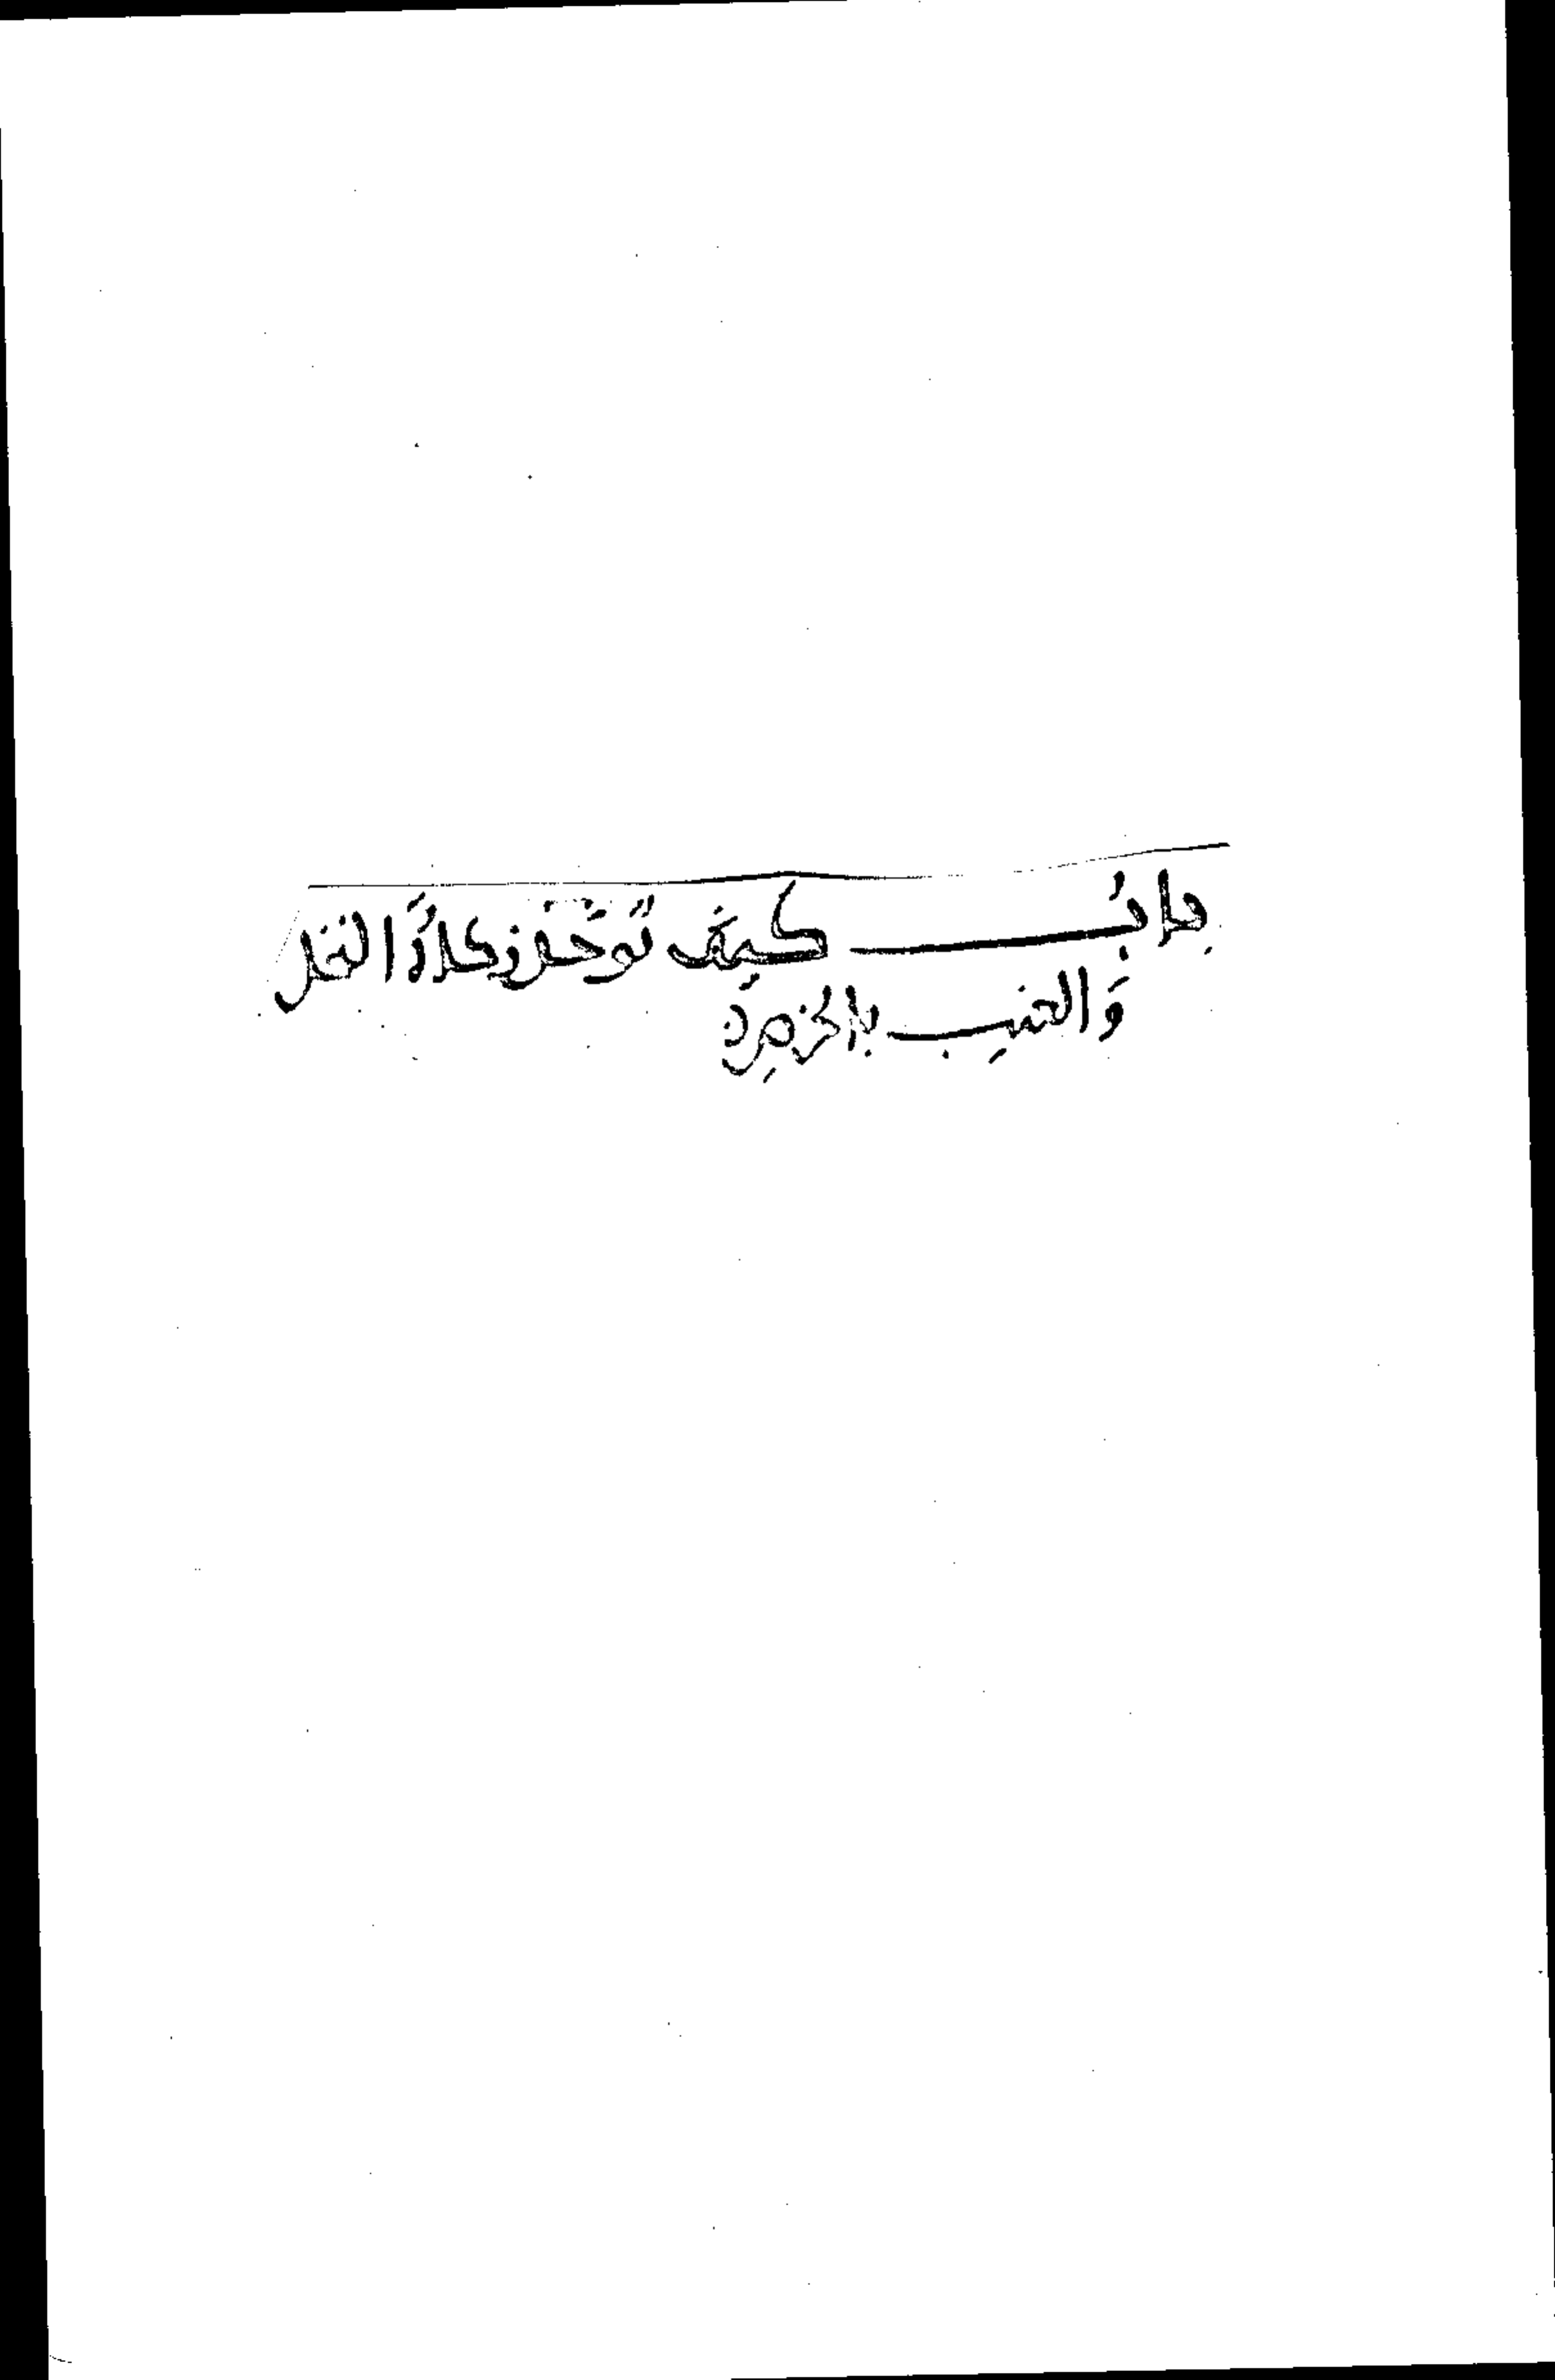 بابُ كيفَ تؤخذ زكاةُ النخل
وَالعنبِ بالخرصِ